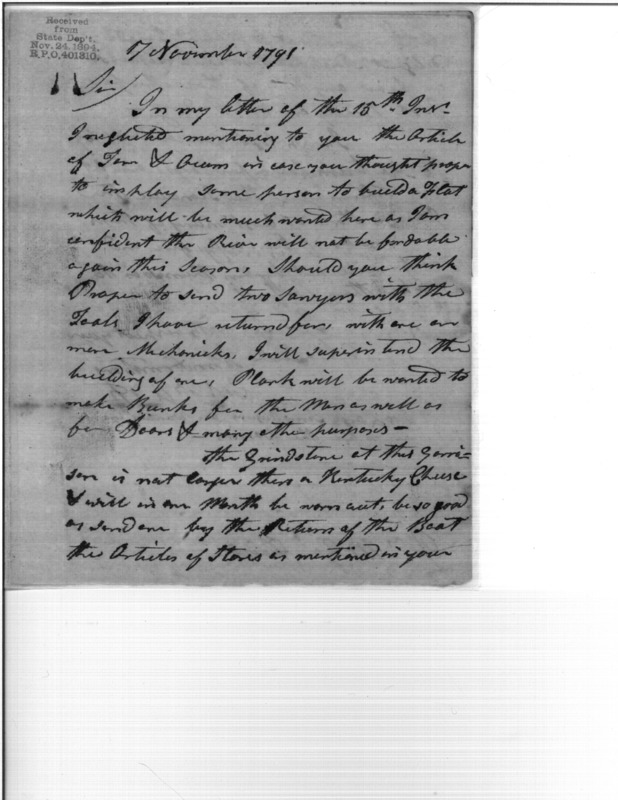 Received
from
State Dep't.
Nov. 24, 1894.
R.P.O. 401310.
17 November 1791
Sir
In my letter of the 15th. Inst.
I neglected mentioning to you the Article
of Tarr & Ocum in case you thought proper
to imploy some person to build a Flat
which will be much wanted here as I am
confident the River will not be fordable
again this Season, Should you think
Proper to send two Sawyers with the
Tools I have returned for, with one or
more Mechanicks, I will superintend the
building of one, Plank will be wanted to
make Bunks for the Men as well as
for Doors & many other purposes —
the Grindstone at this Garri=
son is not larger then a Kentucky Cheese
& will in one Month be worn out, be so good
as send one by the Return of the Boat
the Articles of Stores as mentioned in your